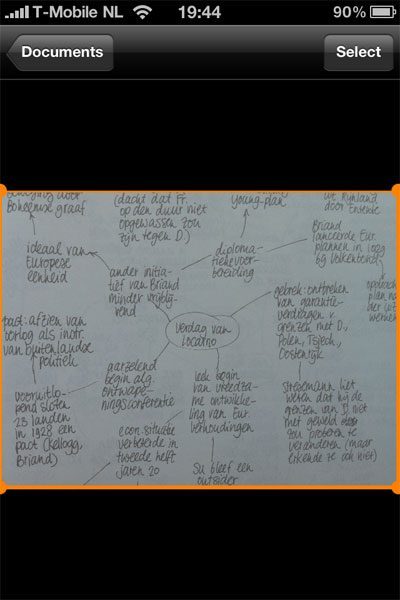 T-Mobile NL
19:44
90%
Documents
Select
Boheemse graaf
(dacht dat Fr.
op den duur niet
opgewassen zou
zijn tegen D.)
Young-plan
uit Rijnland
door
Briand
lanceerde Eur.
plannen in 1929
bij Volkenbond
ideaal van
Europese
eenheid
ander initia-
tief van Briand
minder vrijblij-
vend
diploma-
tieke voor-
bereiding
pact: afzien van
oorlog als instr.
van buitenlandse
politiek
Verdrag van
Locarno
gebrek: ontbreken
van garantie-
verdragen v.
grenzen met D.,
Polen, Tsjech,
Oostenrijk
plan na
hier uit
werken
aarzelend
begin alg.
ontwape-
ningsconferentie
vooruitlo-
pend sloten
23 landen
in 1928 een
pact (Kellogg,
Briand)
leek begin
van vreedza-
me ontwikke-
ling van Eur.
verhoudingen
Stresemann liet
weten dat hij de
grenzen van D. niet
met geweld
zou proberen te
veranderen (maar
erkende ze ook niet)
econ. situatie
verbeterde in
tweede helft
jaren 20
SU bleef een
outsider